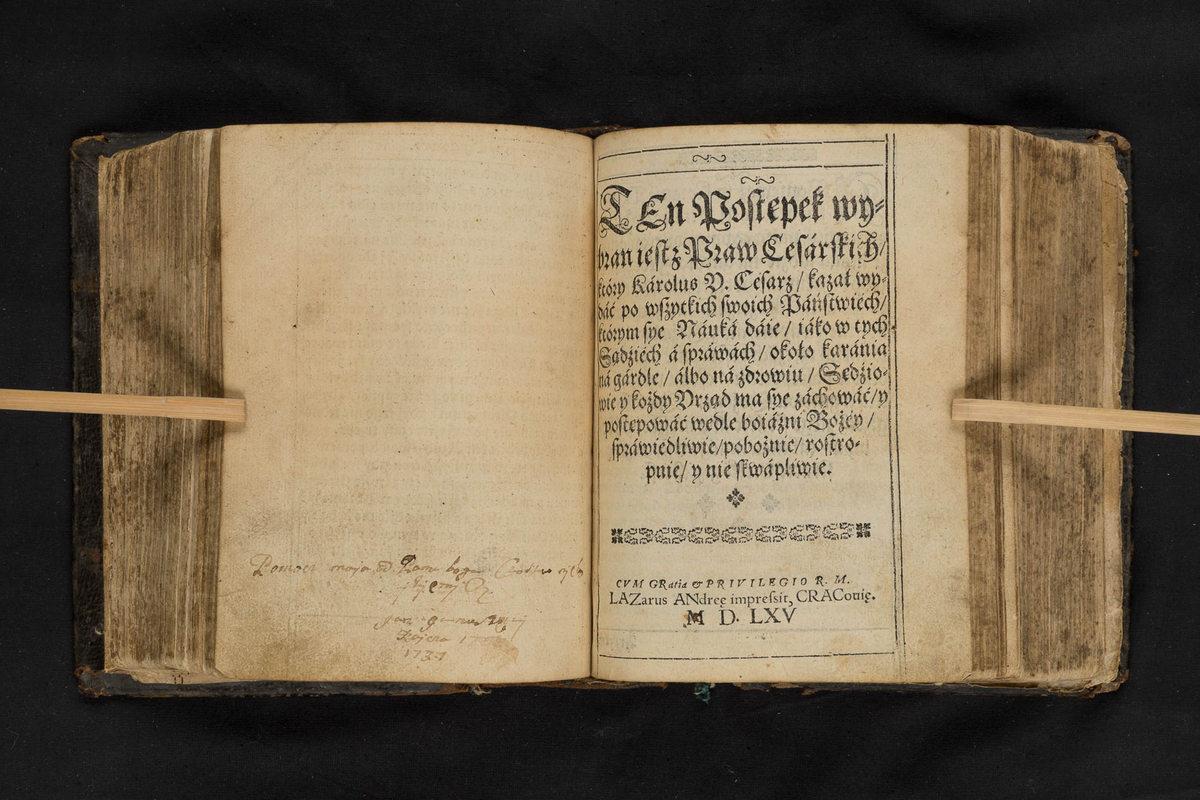 Pomocz moja od Pana boga
1731
TEn Postępek wy-
bran iest z Praw Cesárskich/
ktory Károlus V. Cesarz/ kazał wy-
dáć po wszytkich swoich Páństwiech/
ktorym sye Náuká dáie/ iáko w tych
Sądziech á spráwách/ około karánia
ná gárdle/ álbo ná zdrowiu/ Sędzio-
wie y kożdy Vrząd ma sye záchowáć/ y
postępowáć wedle boiáźni Bożey/
spráwiedliwie/ pobożnie/ rostro-
pnie/ y nie skwápliwie.
CVM GRatia & PRIVILEGIO R. M.
LAZarus ANdreę impressit, CRACouię.
M D. LXV